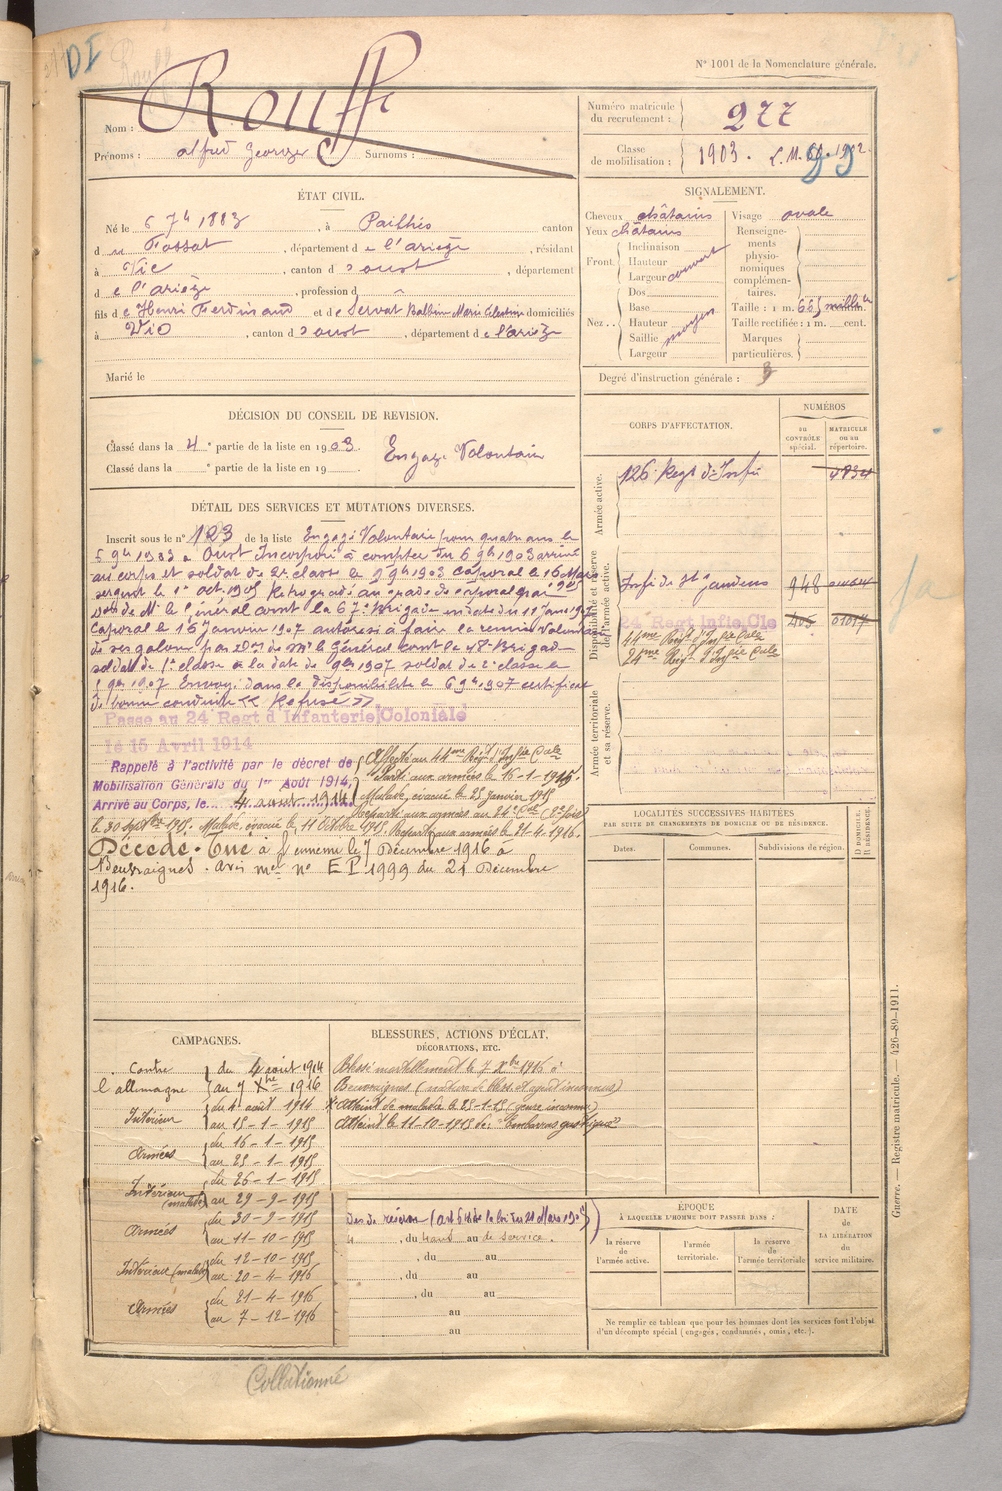 DI
N° 1001 de la Nomenclature générale.
Nom : Rouff
Prénoms : alfred Georges Surnoms :
Numéro matricule du recrutement : 277
Classe de mobilisation : 1903.
ÉTAT CIVIL.
Né le 5 7bre 1883, à Pailhès canton
du Fossat, département de l'ariège, résidant
à Vic, canton d'oust, département
de l'ariège, profession d
fils de Henri Ferdinand et de Servat Balbine Marie Célestine domiciliés
à Vic, canton d'oust, département de l'ariège
Marié le
SIGNALEMENT.
Cheveux châtains Visage ovale
Yeux châtains
Front. Inclinaison
Hauteur
Largeur couvert
Nez.. Dos
Base
Hauteur moyen
Saillie
Largeur
Renseignements physionomiques complémentaires.
Taille : 1 m. 665 millim
Taille rectifiée : 1 m. cent.
Marques particulières.
Degré d'instruction générale : 3
DÉCISION DU CONSEIL DE REVISION.
Classé dans la 4e partie de la liste en 1903. Engagé Volontaire
Classé dans la e partie de la liste en 19
DÉTAIL DES SERVICES ET MUTATIONS DIVERSES.
Inscrit sous le n° 123 de la liste Engagé Volontaire pour quatre ans le
5 9bre 1903 à Oust Incorporé à compter du 6 9bre 1903 arrivé
au corps et soldat de 2e classe le 9bre 1903 Caporal le 16 Mars
sergent le 1er oct. 1905 Rétrogradé au grade de caporal par
de Mr le Général comt la 67e Brigade en date du 11 Janv 1907
Caporal le 15 Janvier 1907 autorisé à faire la remise Volontaire
de ses galons par don de Mr le Général comt la 48e Brigade
soldat de 1e classe à la date de 9bre 1907 soldat de 2e classe le
9bre 1907 Envoyé dans la disponibilité le 6 9bre 1907 certificat
de bonne conduite << Refusé >>
Passé au 24 Regt d'Infanterie Coloniale
le 15 Avril 1914
Rappelé à l'activité par le décret de
Mobilisation Générale du 1er Août 1914,
Arrivé au Corps, le 4 août 1914
Affecté au 44ème Régt d'Infie Cale
Parti aux armées le 16-1-1915
Malade, évacué le 25 janvier 1915
Reparti aux armées au 24e Cal (2e fois)
le 30 septbre 1915. Malade, évacué le 11 Octobre 1915. Reparti aux armées le 21-4-1916.
Décédé. Tué à l'ennemi le 7 Décembre 1916 à
Beuvraignes. avis mel no EP 1999 du 21 Décembre
1916.
CORPS D'AFFECTATION.
NUMÉROS
au contrôle spécial.
MATRICULE ou au répertoire.
Armée active.
126e Regt d'Infie 4834
Disponibilité et réserve de l'armée active.
Infie de St Gaudens 948
24 Regt Infie Cle 405 01017
44ème Régt d'Infie Cale
24ème Régt d'Infie Cale
Armée territoriale et sa réserve.
LOCALITÉS SUCCESSIVES HABITÉES
PAR SUITE DE CHANGEMENTS DE DOMICILE OU DE RÉSIDENCE.
Dates. Communes. Subdivisions de région. D. DOMICILE. R. RÉSIDENCE.
CAMPAGNES.
Contre l'allemagne du 4 août 1914
au 7 Xbre 1916
Intérieur du 4 août 1914
au 15-1-1915
Armées du 16-1-1915
au 25-1-1915
Intérieur (malade) du 26-1-1915
au 29-9-1915
Armées du 30-9-1915
au 11-10-1915
Intérieur (malade) du 12-10-1915
au 20-4-1916
Armées du 21-4-1916
au 7-12-1916
BLESSURES, ACTIONS D'ÉCLAT,
DÉCORATIONS, ETC.
Blessé mortellement le 7 Xbre 1916 à
Beuvraignes (nature de bless. et agent inconnus)
Atteint de maladie le 25-1-15 (genre inconnu)
Atteint le 11-10-1915 de: "Embarras gastrique"
des de réserve (art de la loi du 21 Mars 1905)
, du au de service.
, du au
, du au
, du au
au
au
ÉPOQUE
À LAQUELLE L'HOMME DOIT PASSER DANS :
la réserve de l'armée active.
l'armée territoriale.
la réserve de l'armée territoriale
DATE de LA LIBÉRATION du service militaire.
Ne remplir ce tableau que pour les hommes dont les services font l'objet
d'un décompte spécial (engagés, condamnés, omis, etc.).
Guerre. — Registre matricule. — 426-89-1911.
Collationné